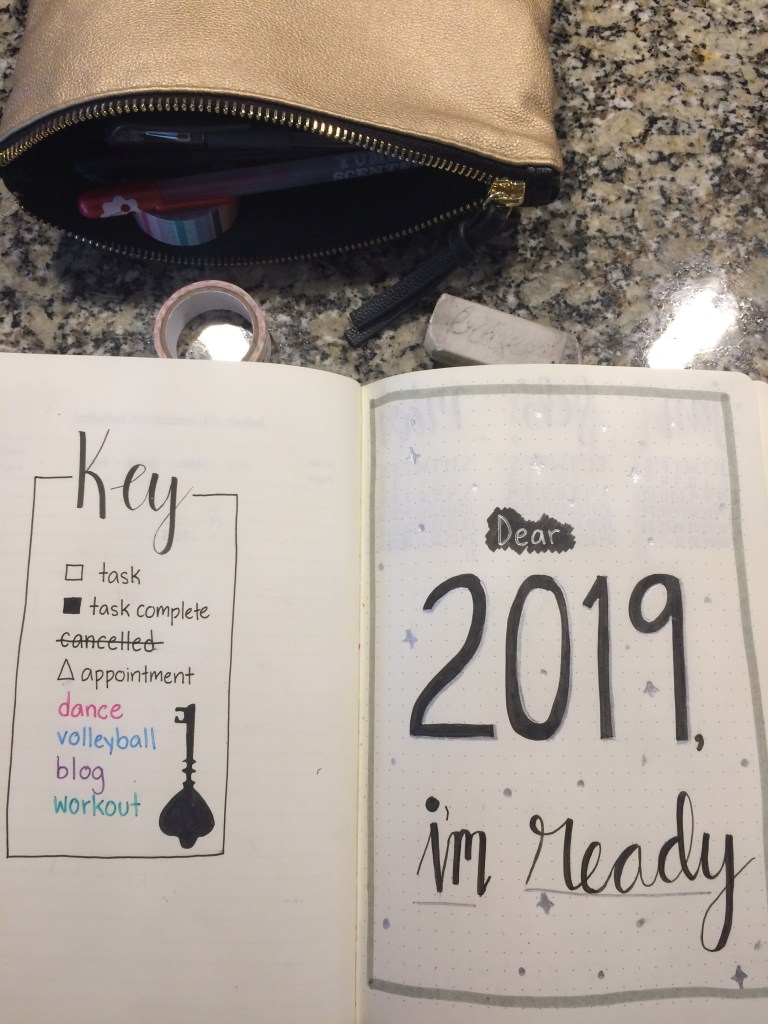 YUM
SCENT
Key
task
task complete
cancelled
appointment
dance
volleyball
blog
workout
Dear
2019,
i'm ready